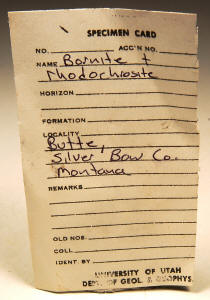 SPECIMEN CARD
NO. ACC'N NO.
NAME Bornite +
rhodochrosite
HORIZON
FORMATION
LOCALITY
Butte,
Silver Bow Co.
Montana
REMARKS
OLD NOS.
COLL.
IDENT. BY
UNIVERSITY OF UTAH
DEPT. OF GEOL. & GEOPHYS.